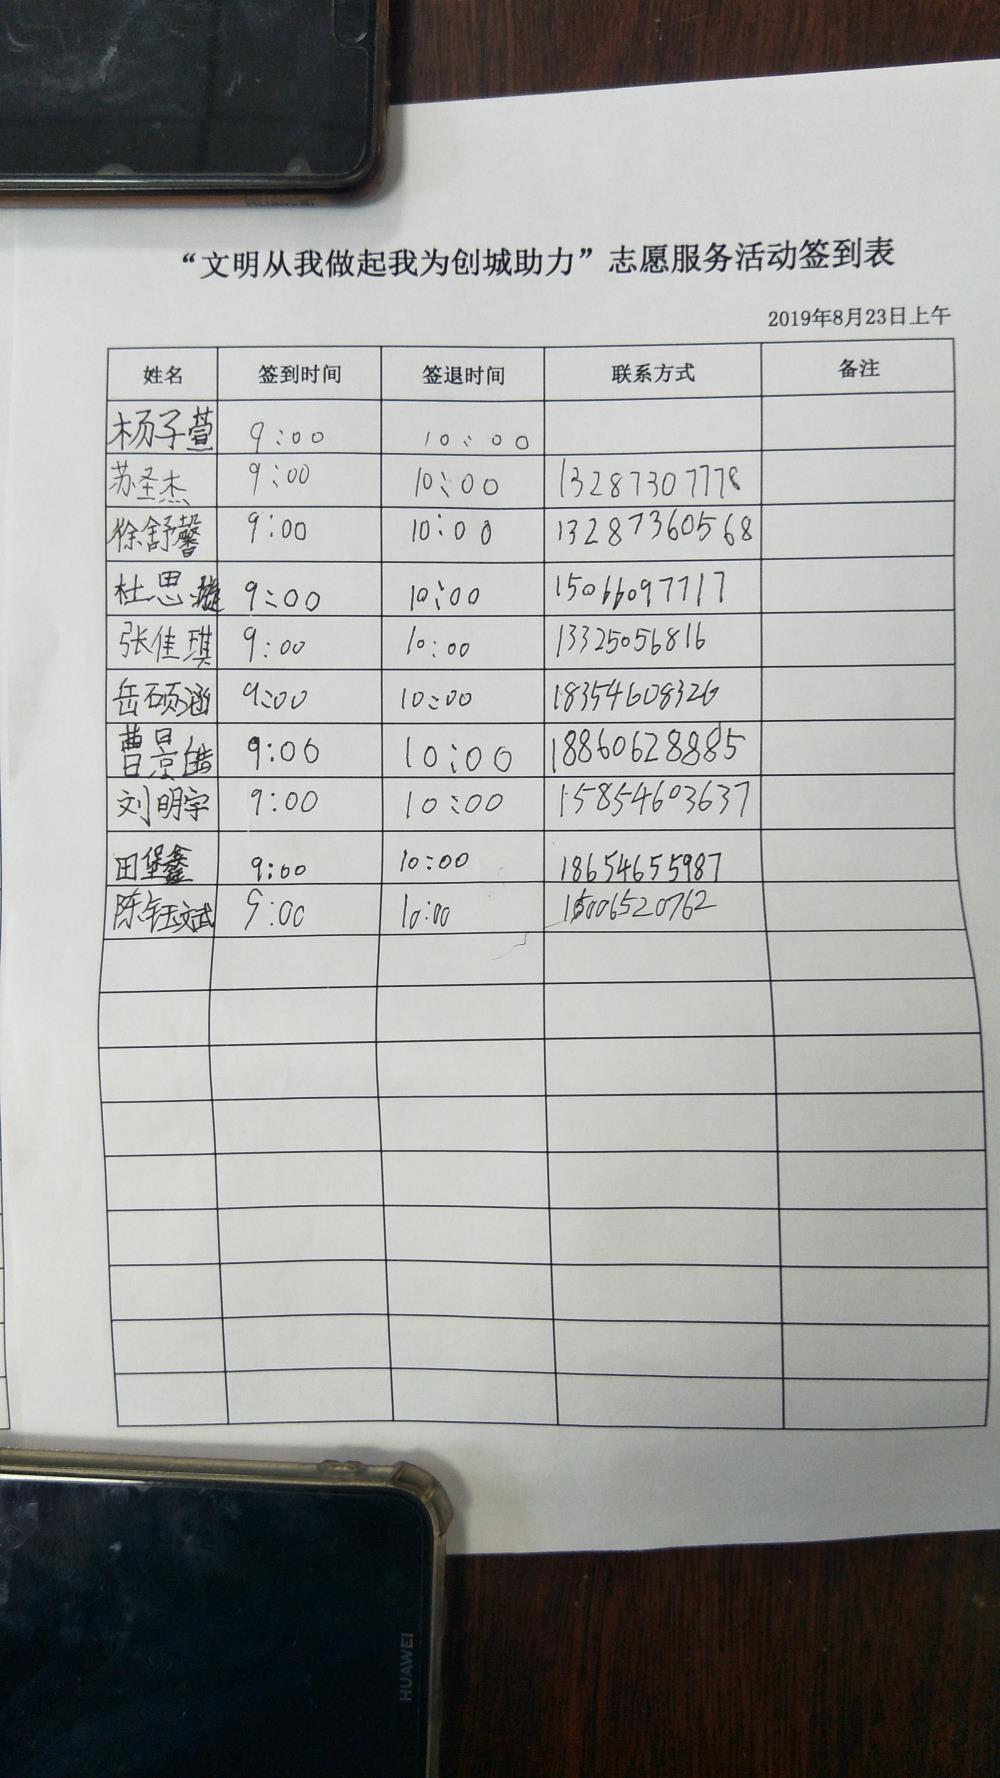 “文明从我做起我为创城助力”志愿服务活动签到表
2019年8月23日上午
姓名 签到时间 签退时间 联系方式 备注
杨子萱 9:00 10:00
苏圣杰 9:00 10:00 13287307778
徐舒馨 9:00 10:00 13287360568
杜思璇 9:00 10:00 15066097717
张佳琪 9:00 10:00 13325056816
岳硕涵 9:00 10:00 18354608326
曹景皓 9:00 10:00 18860628885
刘明宇 9:00 10:00 15854603637
田堡鑫 9:00 10:00 18654655987
陈钰斌 9:00 10:00 15006520762
HUAWEI